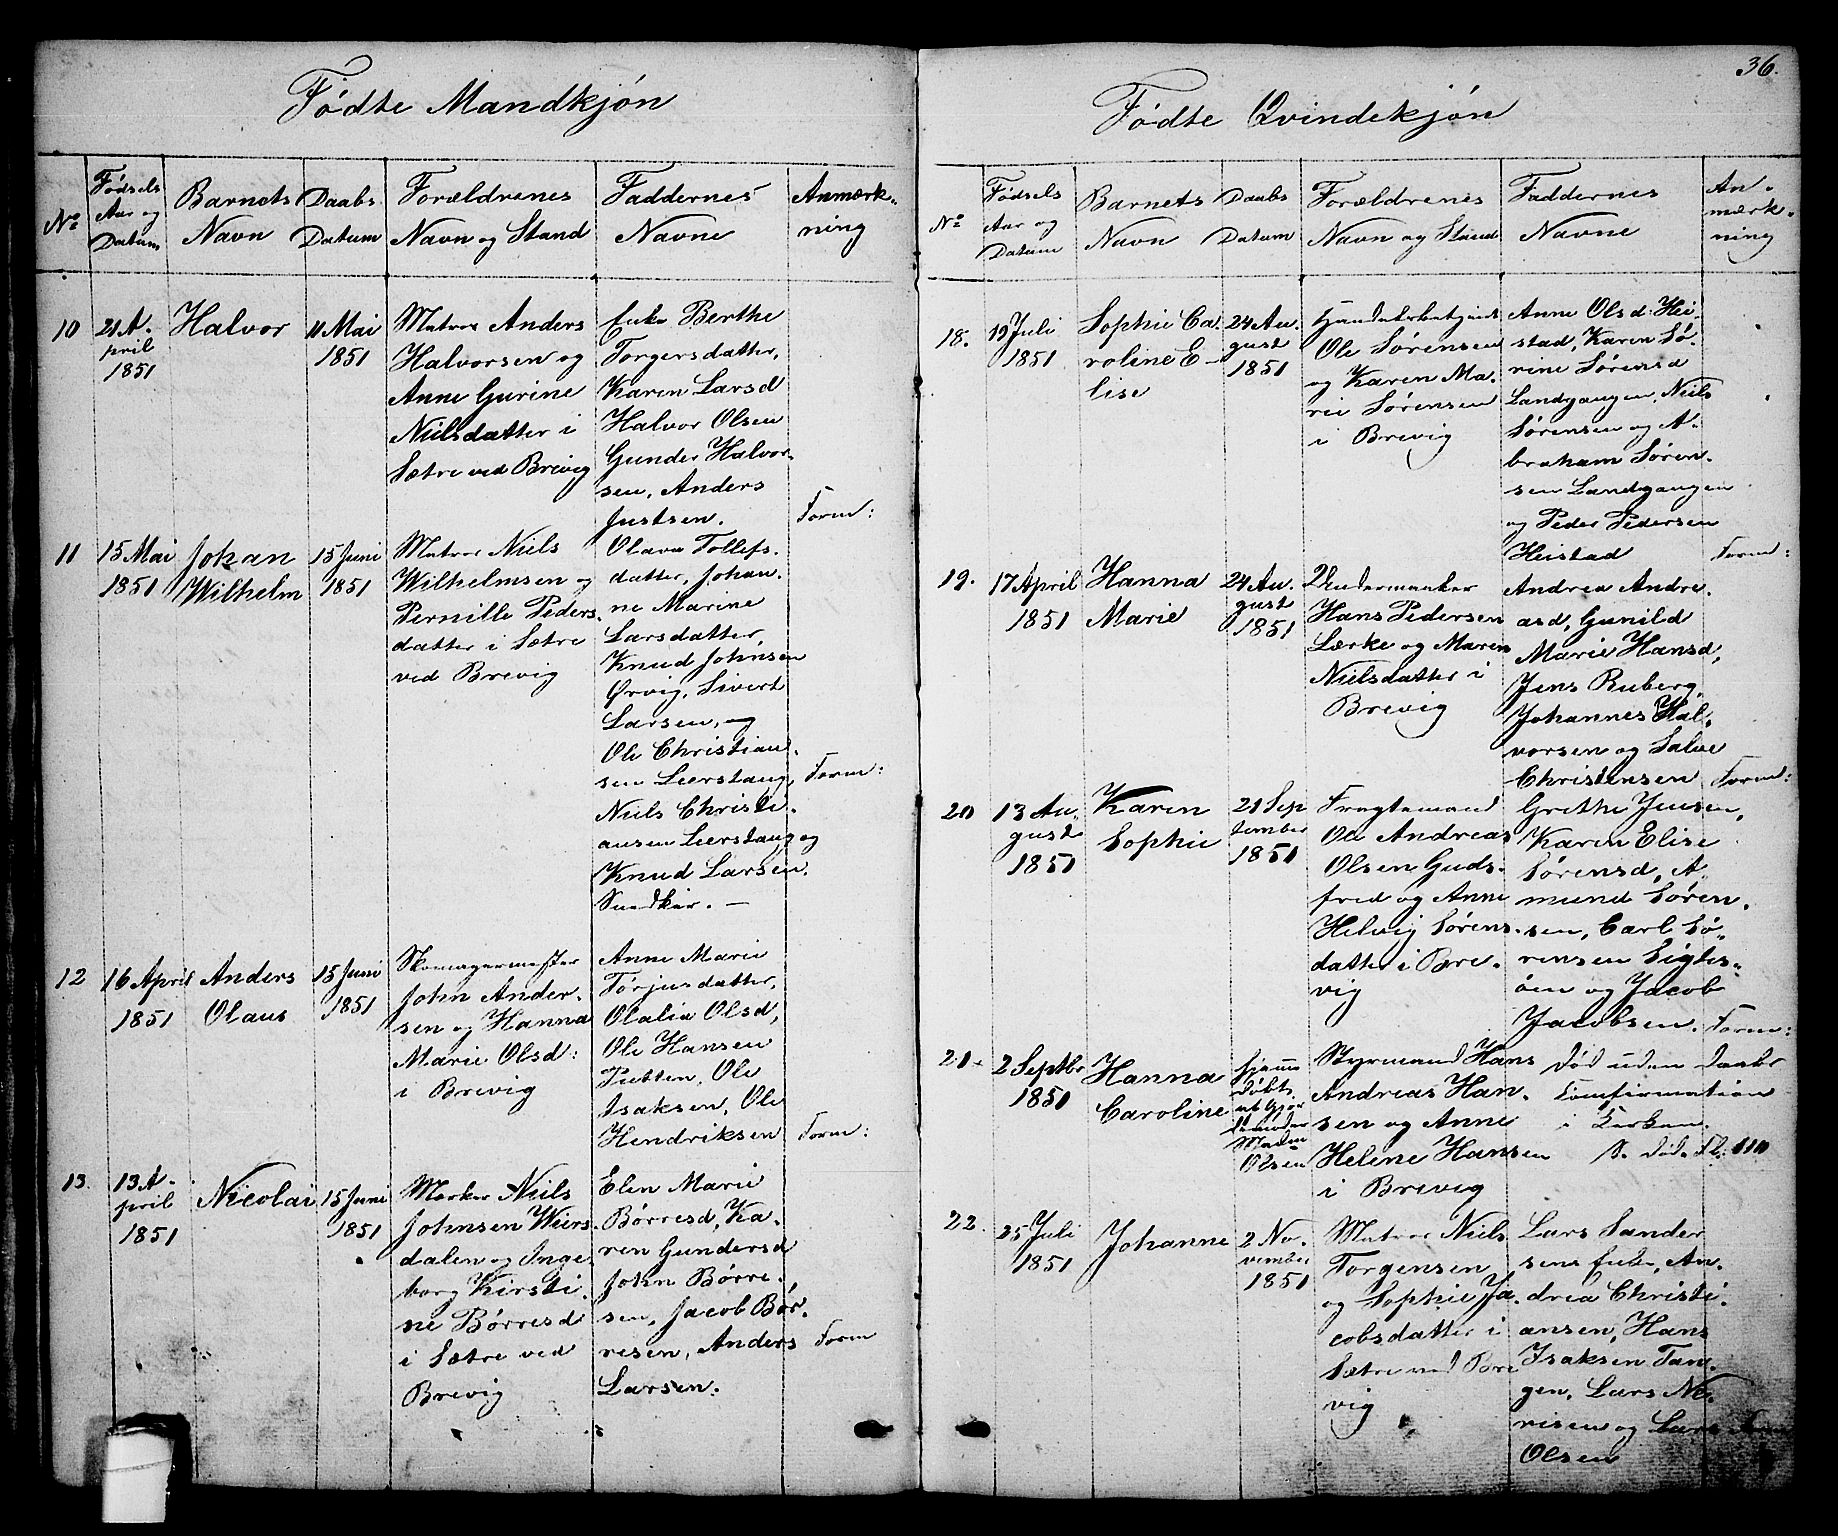 36.
Fødte Mandkjøn
No
Fødsels Aar og Datum
Barnets Navn
Daabs Datum
Forældrenes Navn og Stand
Faddernes Navne
Anmærkning
10
21 A-
pril
1851
Halvor
11 Mai
1851
Matros Anders
Halvorsen og
Anne Gurine
Nielsdatter i
Sætre ved Brevig
Enke Berthe
Torgersdatter,
Karen Larsd
Halvor Olsen
Gunder Halvor-
sen, Anders
Justsen.
Form:
11
15 Mai
1851
Johan
Wilhelm
15 Juni
1851
Matros Niels
Wilhelmsen og
Pernille Peders-
datter i Sætre
ved Brevig
Olava Tollefs-
datter, Johan-
ne Marine
Larsdatter,
Knud Johnsen
Ørvig, Sivert
Larsen, og
Ole Christian-
sen Lerstang,
Niels Christi-
ansen Leerstang og
Knud Larsen
Form:
12
16 April
1851
Anders
Olaus
15 Juni
1851
Skomagermester
John Ander-
sen og Hanna
Marie Olsd:
i Brevig
Anne Marie
Torjusdatter,
Olalia Olsd,
Ole Hansen
Ole
Isaksen, Ole
Hendriksen
Form:
13.
13 A-
pril
1851
Nicolai
15 Juni
1851
Mærker Niels
Johnsen Wiers-
dalen og Inge-
borg Kirsti-
ne Børresd
i Sætre ved
Brevig
Elen Marie
Børresd, Ka-
ren Gundersd
John Børre-
sen, Jacob Bør-
resen, Anders
Larsen.
Form
Fødte Qvindekjøn
No
Fødsels Aar og Datum
Barnets Navn
Daabs Datum
Forældrenes Navn og Stand
Faddernes Navne
Anmærkning
18.
19 Juli
1851
Sophie Ca-
roline E-
lise
24 Au-
gust
1851
Ole Sørensen
og Karen Ma-
rie Sørensen
i Brevig
Anne Olsd: Hei-
stad, Karen Sø-
rine Sørensd
Landgangen, Niels
Sørensen og A-
braham Søren-
sen Landgangen
og Peder Pedersen
Heistad
Form:
19.
17 April
1851
Hanna
Marie
24 Au-
gust
1851
Hans Pedersen
Lærke og Maren
Nielsdatter i
Brevig
Andrea Andre-
asd, Gunild
Marie Hansd,
Jens Ruberg,
Johannes Hal-
vorsen og Salve
Christensen
Form:
20
13 Au-
gust
1851
Karen
Sophie
21 Sep
tember
1851
Fragtemand
Ole Andreas
Olsen Guds-
fred og Anne
Helvig Sørens-
datter i Bre-
vig
Grethe Jensen,
Karen Elise
Sørensd, A-
mund Søren-
sen, Carl Sø-
rensen Sigtes-
øen og Jacob
Jacobsen.
Form:
21.
2 Septbr
1851
Hanna
Caroline
Hjemme
døbt
af Gjor
demoder
Madm
Olsen
Styrmand Hans
Andreas Han-
sen og Anne
Helene Hansen
i Brevig
Død uden Daabs
Comfirmation
i Kirken.
S. død. Fl: 110
22.
25 Juli
1851
Johanne
2 No-
vember
1851
Matros Niels
Torgensen
og Sophie Ja-
cobsdatter i
Sætre ved Bre
vig
Lars Sander
sens Enke, An-
drea Christi-
ansen, Hans
Isaksen Tan-
gen, Lars Ne-
risen og Lars
Olsen